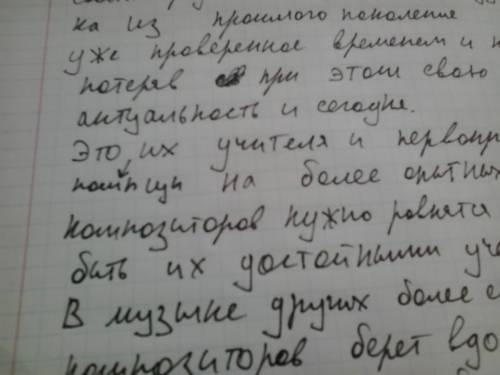 ка из прошлого поколение
уже проверенное временем и н
потеряв при этом свою
актуальность и сегодня.
Это, их учителя и первопр
на более опытных
композиторов нужно ровнятся
быть их достойными уче
В музыке других более о
композиторов берет вдо